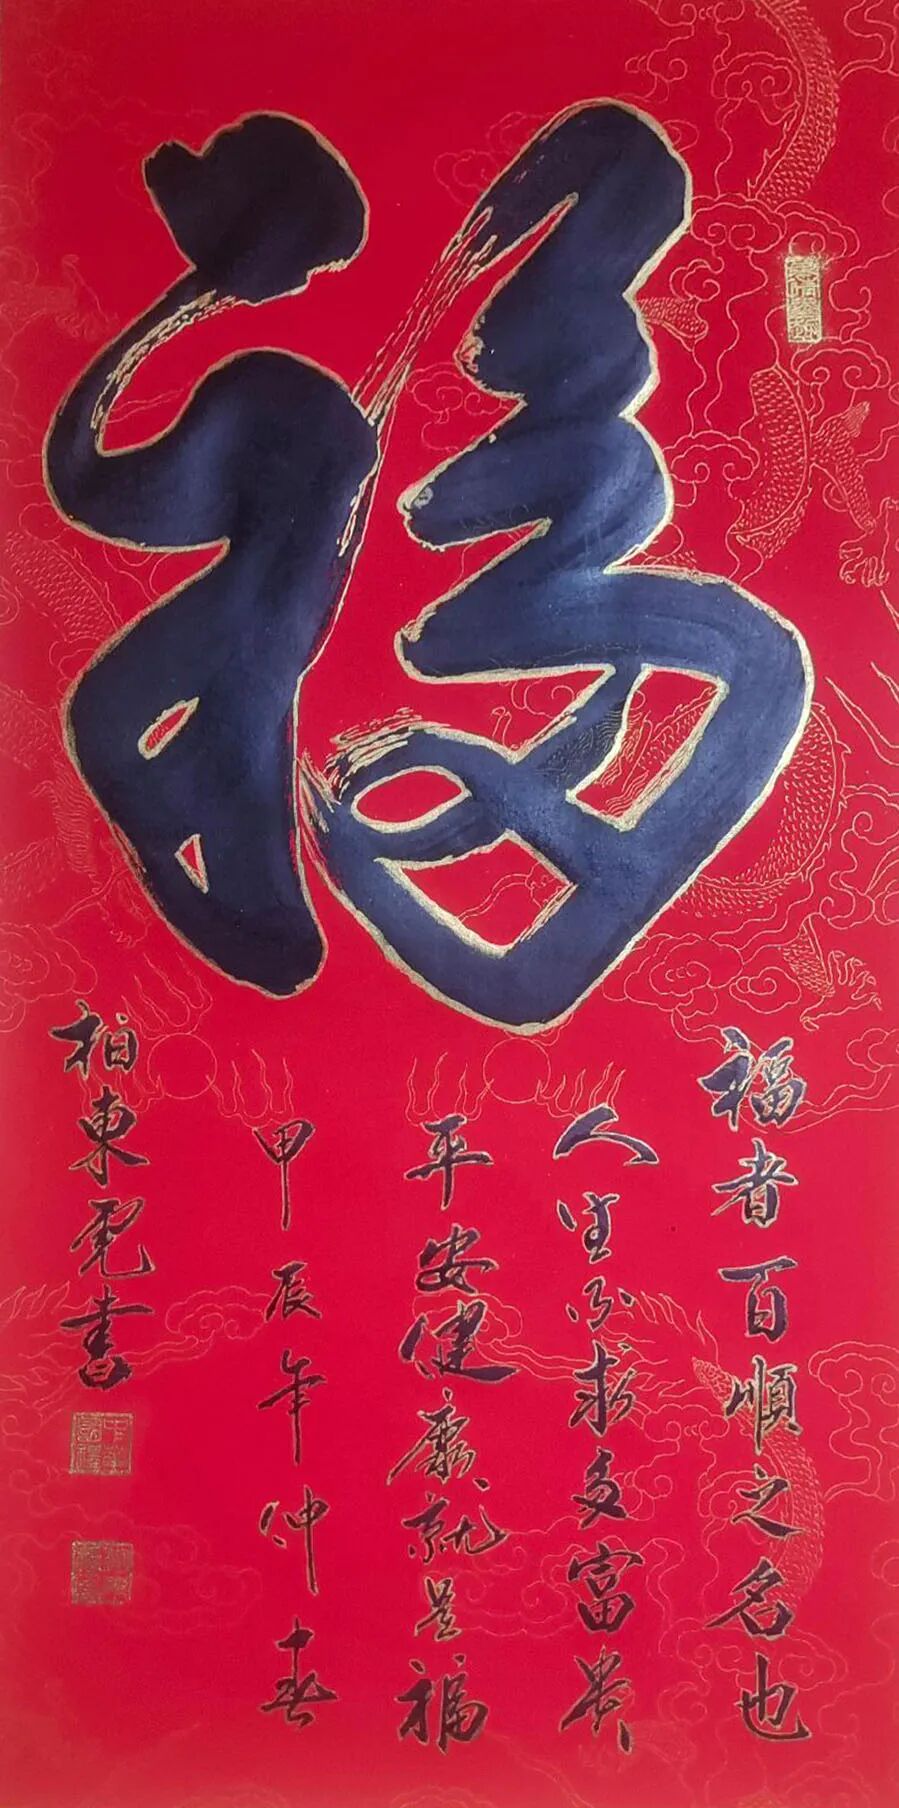 福
福者百順之名也
人生不求多富贵
平安健康就是福
甲辰年仲春
柏東虎書